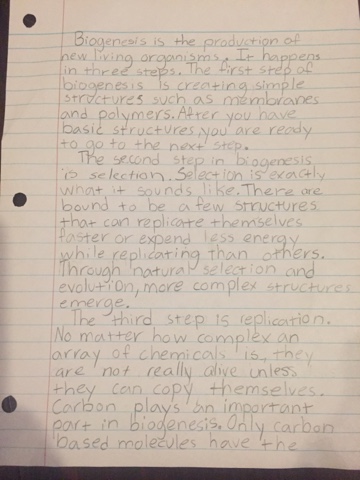 Biogenesis is the production of
new living organisms. It happens
in three steps. The first step of
biogenesis is creating simple
structures such as membranes
and polymers. After you have
basic structures, you are ready
to go to the next step.
The second step in biogenesis
is selection. Selection is exactly
what it sounds like. There are
bound to be a few structures
that can replicate themselves
faster or expend less energy
while replicating than others.
Through natural selection and
evolution, more complex structures
emerge.
The third step is replication.
No matter how complex an
array of chemicals is, they
are not really alive unless
they can copy themselves.
Carbon plays an important
part in biogenesis. Only carbon
based molecules have the